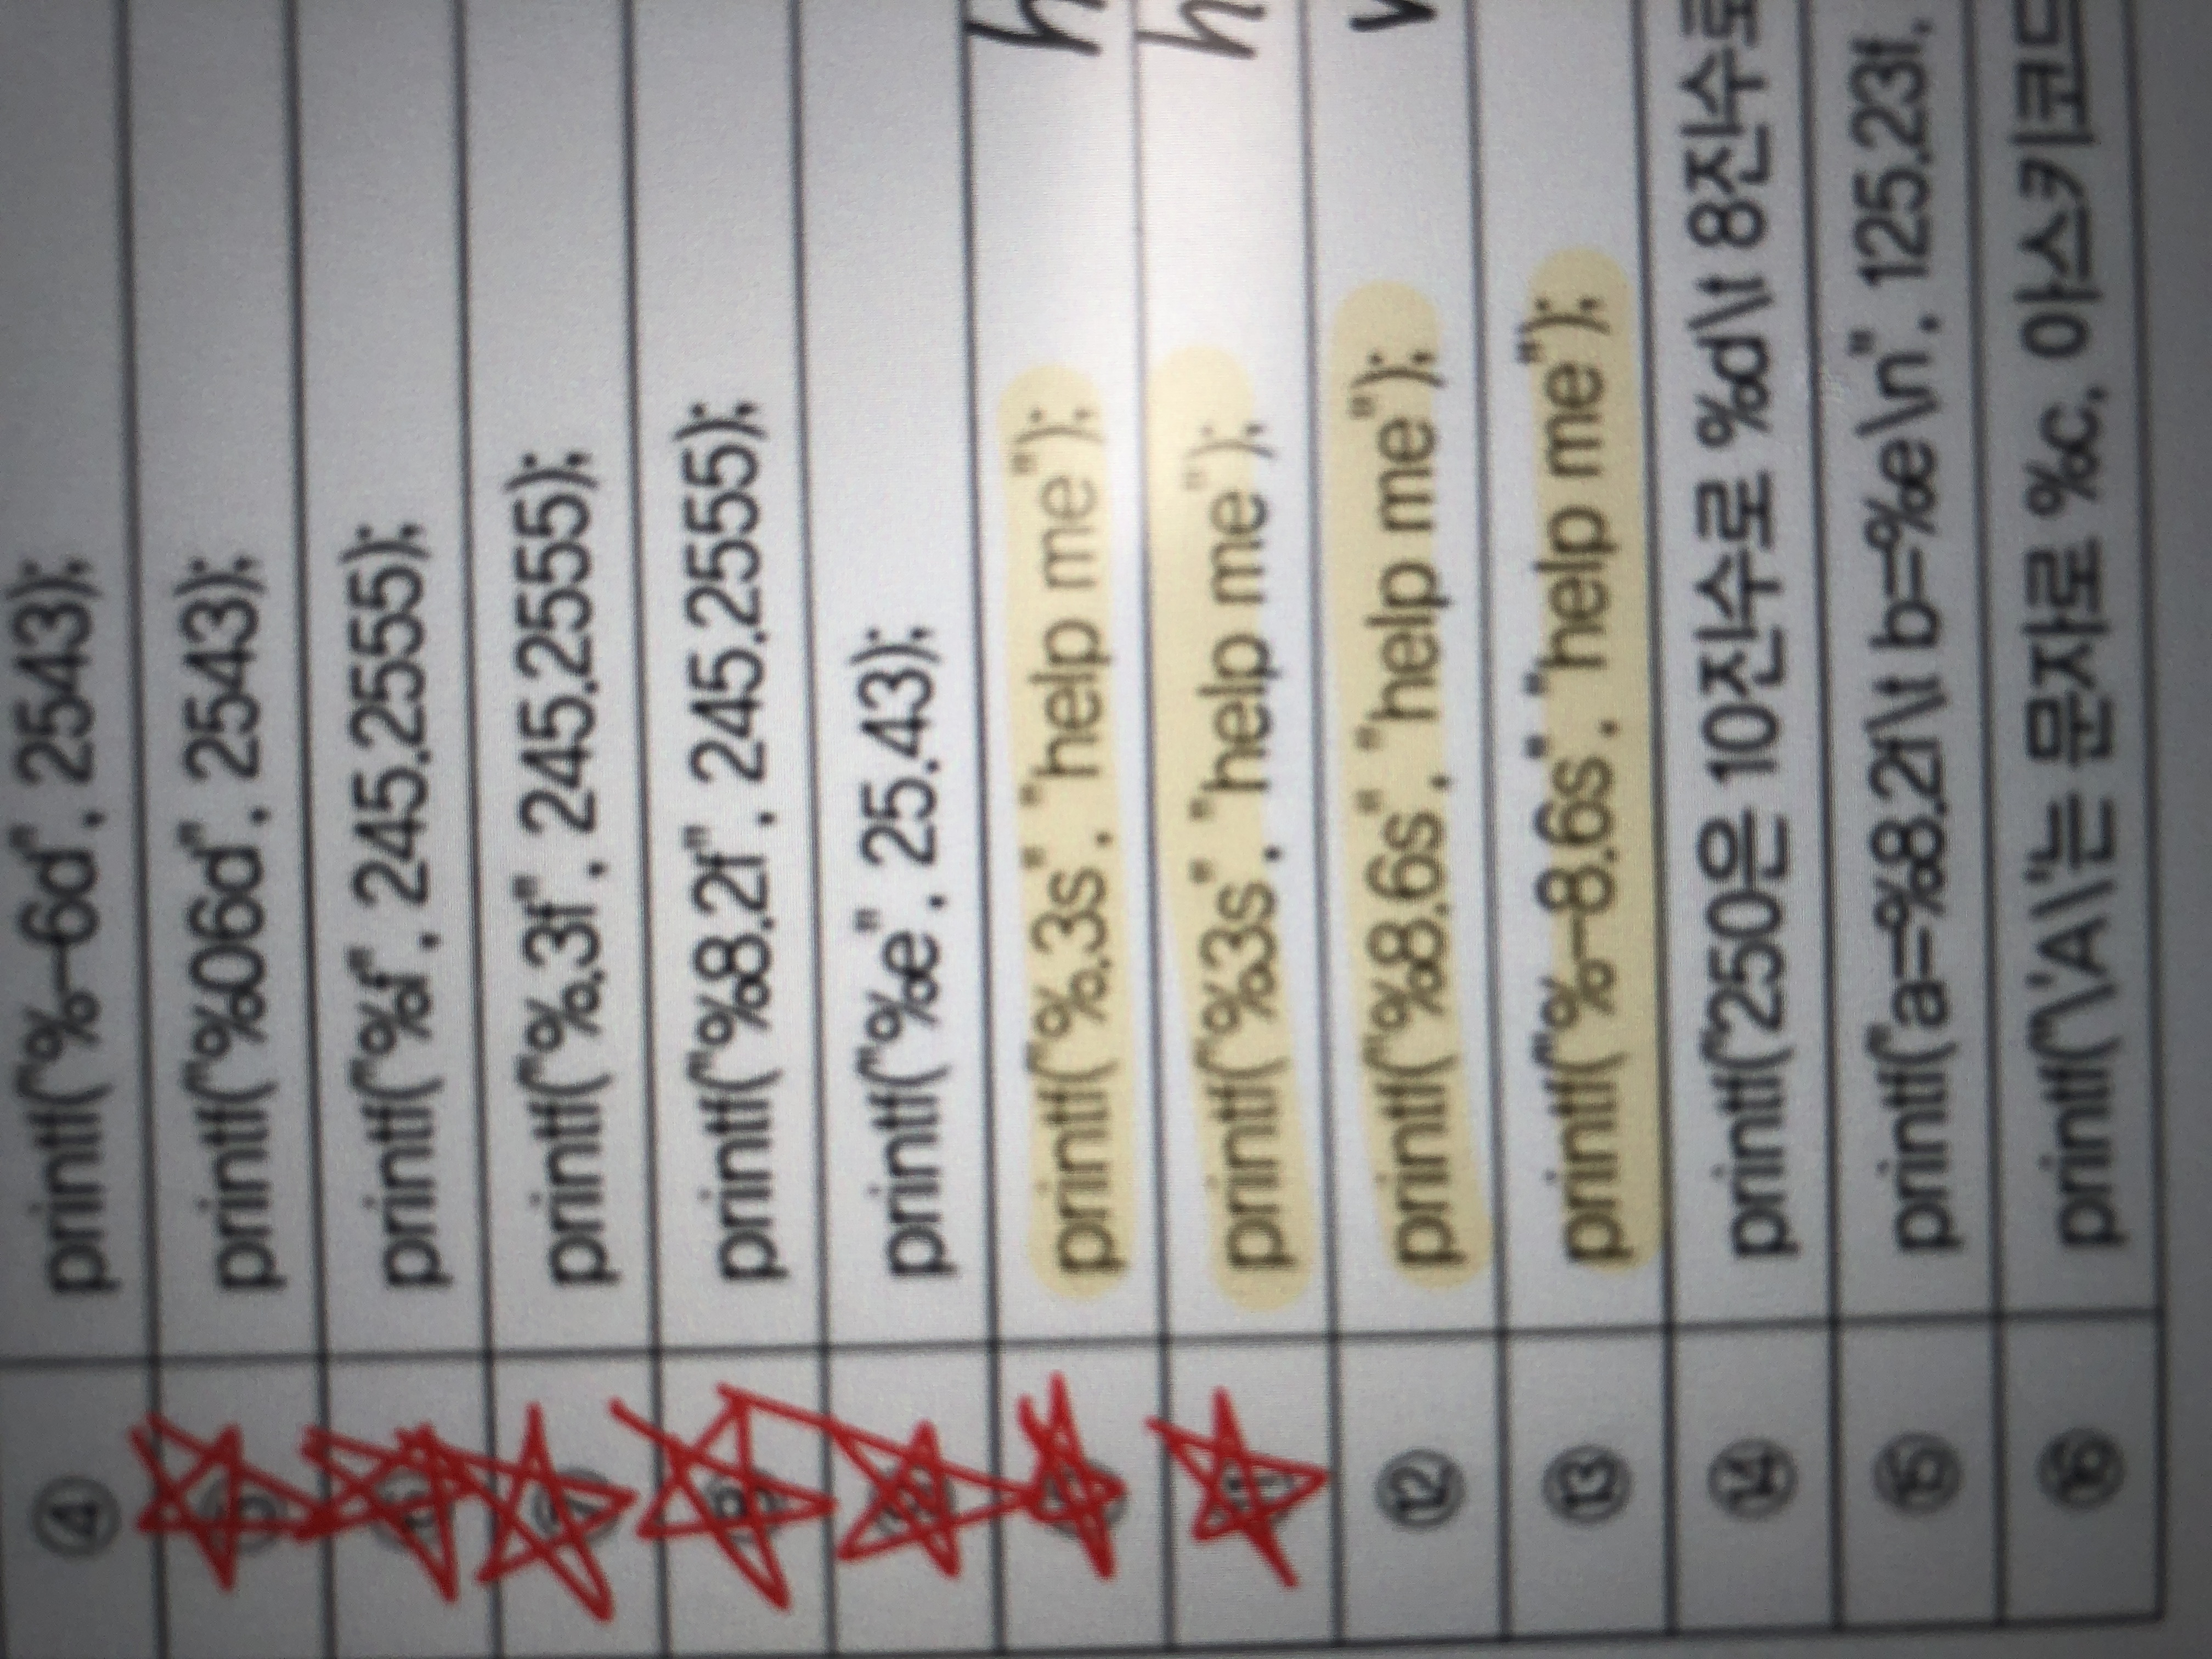 ④ printf("%-6d", 2543);
printf("%06d", 2543);
printf("%f", 245.2555);
printf("%.3f", 245.2555);
printf("%8.2f", 245.2555);
printf("%e", 25.43);
printf("%.3s", "help me"); h
printf("%3s", "help me"); h
⑫ printf("%8.6s", "help me");
⑬ printf("%-8.6s", "help me");
⑭ printf("250은 10진수로 %d\t 8진수로
⑮ printf("a=%8.2f\t b=%e\n", 125.23f,
⑯ printf("\'A\'는 문자로 %c, 아스키코드